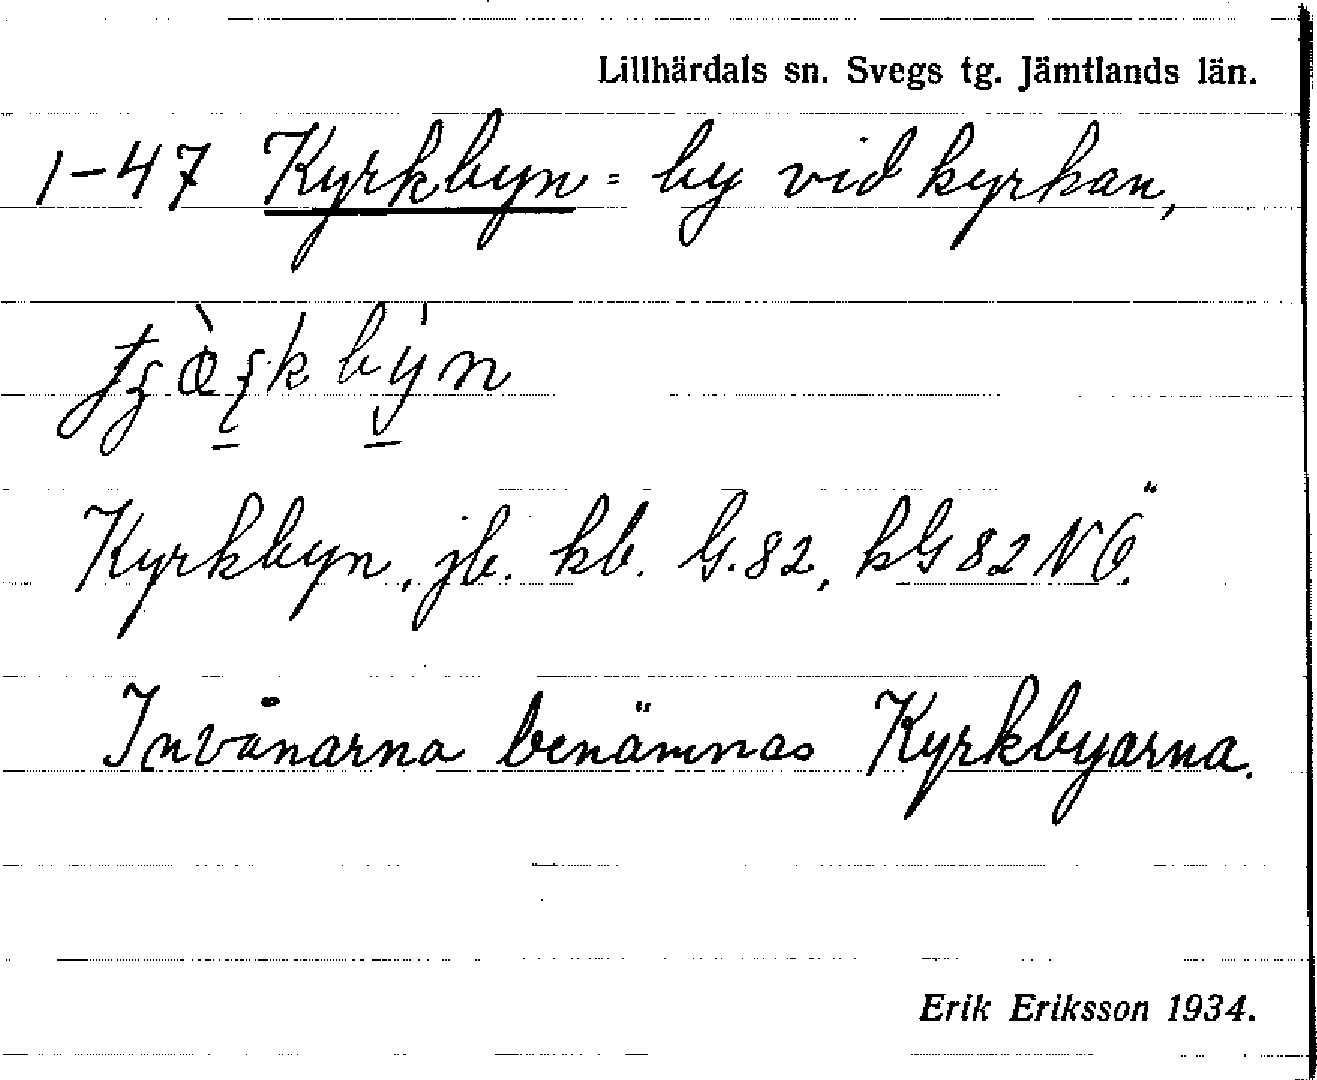 Lillhärdals sn. Svegs tg. Jämtlands län.
1-47 Kyrkbyn = by vid kyrkan,
Kyrkbyn, jb. kb. G.82, kG82NÖ.
Invånarna benämnas Kyrkbyarna.
Erik Eriksson 1934.